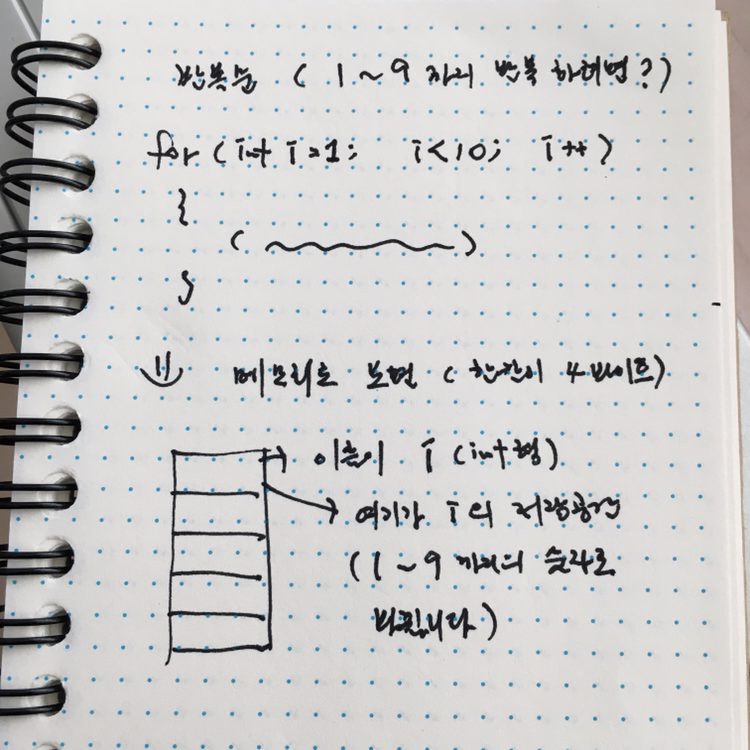 반복문 ( 1 ~ 9 까지 반복 하려면?)
for (int i=1; i<10; i++)
{
( )
}
메모리로 보면 ( 한칸이 4바이트)
이름이 i (int형)
여기가 i의 저장공간
(1 ~ 9 까지의 숫자로
바뀝니다)